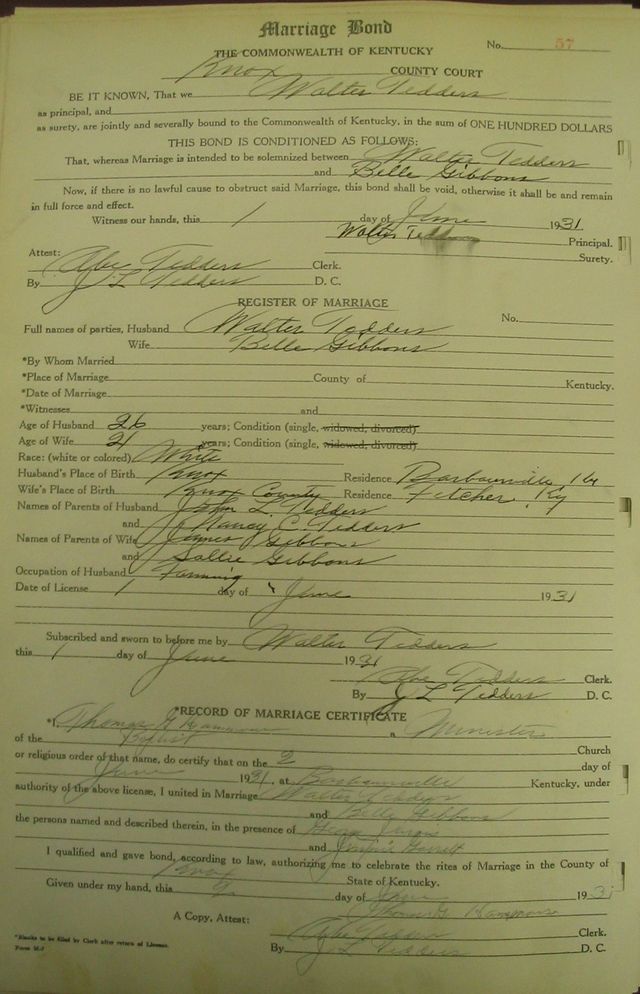 Marriage Bond
THE COMMONWEALTH OF KENTUCKY
No. 57
Knox COUNTY COURT
BE IT KNOWN, That we Walter Tedders
as principal, and
as surety, are jointly and severally bound to the Commonwealth of Kentucky, in the sum of ONE HUNDRED DOLLARS
THIS BOND IS CONDITIONED AS FOLLOWS:
That, whereas Marriage is intended to be solemnized between Walter Tedders
and Belle Gibbons
Now, if there is no lawful cause to obstruct said Marriage, this bond shall be void, otherwise it shall be and remain
in full force and effect.
Witness our hands, this 1 day of June 1931
Walter Tedders Principal.
Attest: Surety.
Abe Tedders Clerk.
By J L Tedders D. C.
REGISTER OF MARRIAGE
Full names of parties, Husband Walter Tedders No.
Wife Belle Gibbons
*By Whom Married
*Place of Marriage County of Kentucky.
*Date of Marriage
*Witnesses and
Age of Husband 26 years; Condition (single, widowed, divorced)
Age of Wife 21 years; Condition (single, widowed, divorced)
Race: (white or colored) White
Husband's Place of Birth Knox Residence Barbourville, Ky
Wife's Place of Birth Knox County Residence Fletcher, Ky
Names of Parents of Husband John L. Tedders
and Nancy C. Tedders
Names of Parents of Wife James Gibbons
and Sallie Gibbons
Occupation of Husband Farming
Date of License 1 day of June 1931
Subscribed and sworn to before me by Walter Tedders
this 1 day of June 1931
Abe Tedders Clerk.
By J L Tedders D. C.
*RECORD OF MARRIAGE CERTIFICATE
*I, Thomas G a Minister
of the Baptist Church
or religious order of that name, do certify that on the 2 day of
June 1931 at Barbourville Kentucky, under
authority of the above license, I united in Marriage Walter Tedders
and Belle Gibbons
the persons named and described therein, in the presence of
and Garrett
I qualified and gave bond, according to law, authorizing me to celebrate the rites of Marriage in the County of
Knox State of Kentucky.
Given under my hand, this day of June 1931
Thomas G.
A Copy, Attest: Abe Tedders Clerk.
By J L Tedders D. C.
*Blanks to be filled by Clerk after return of License.
Form M-7